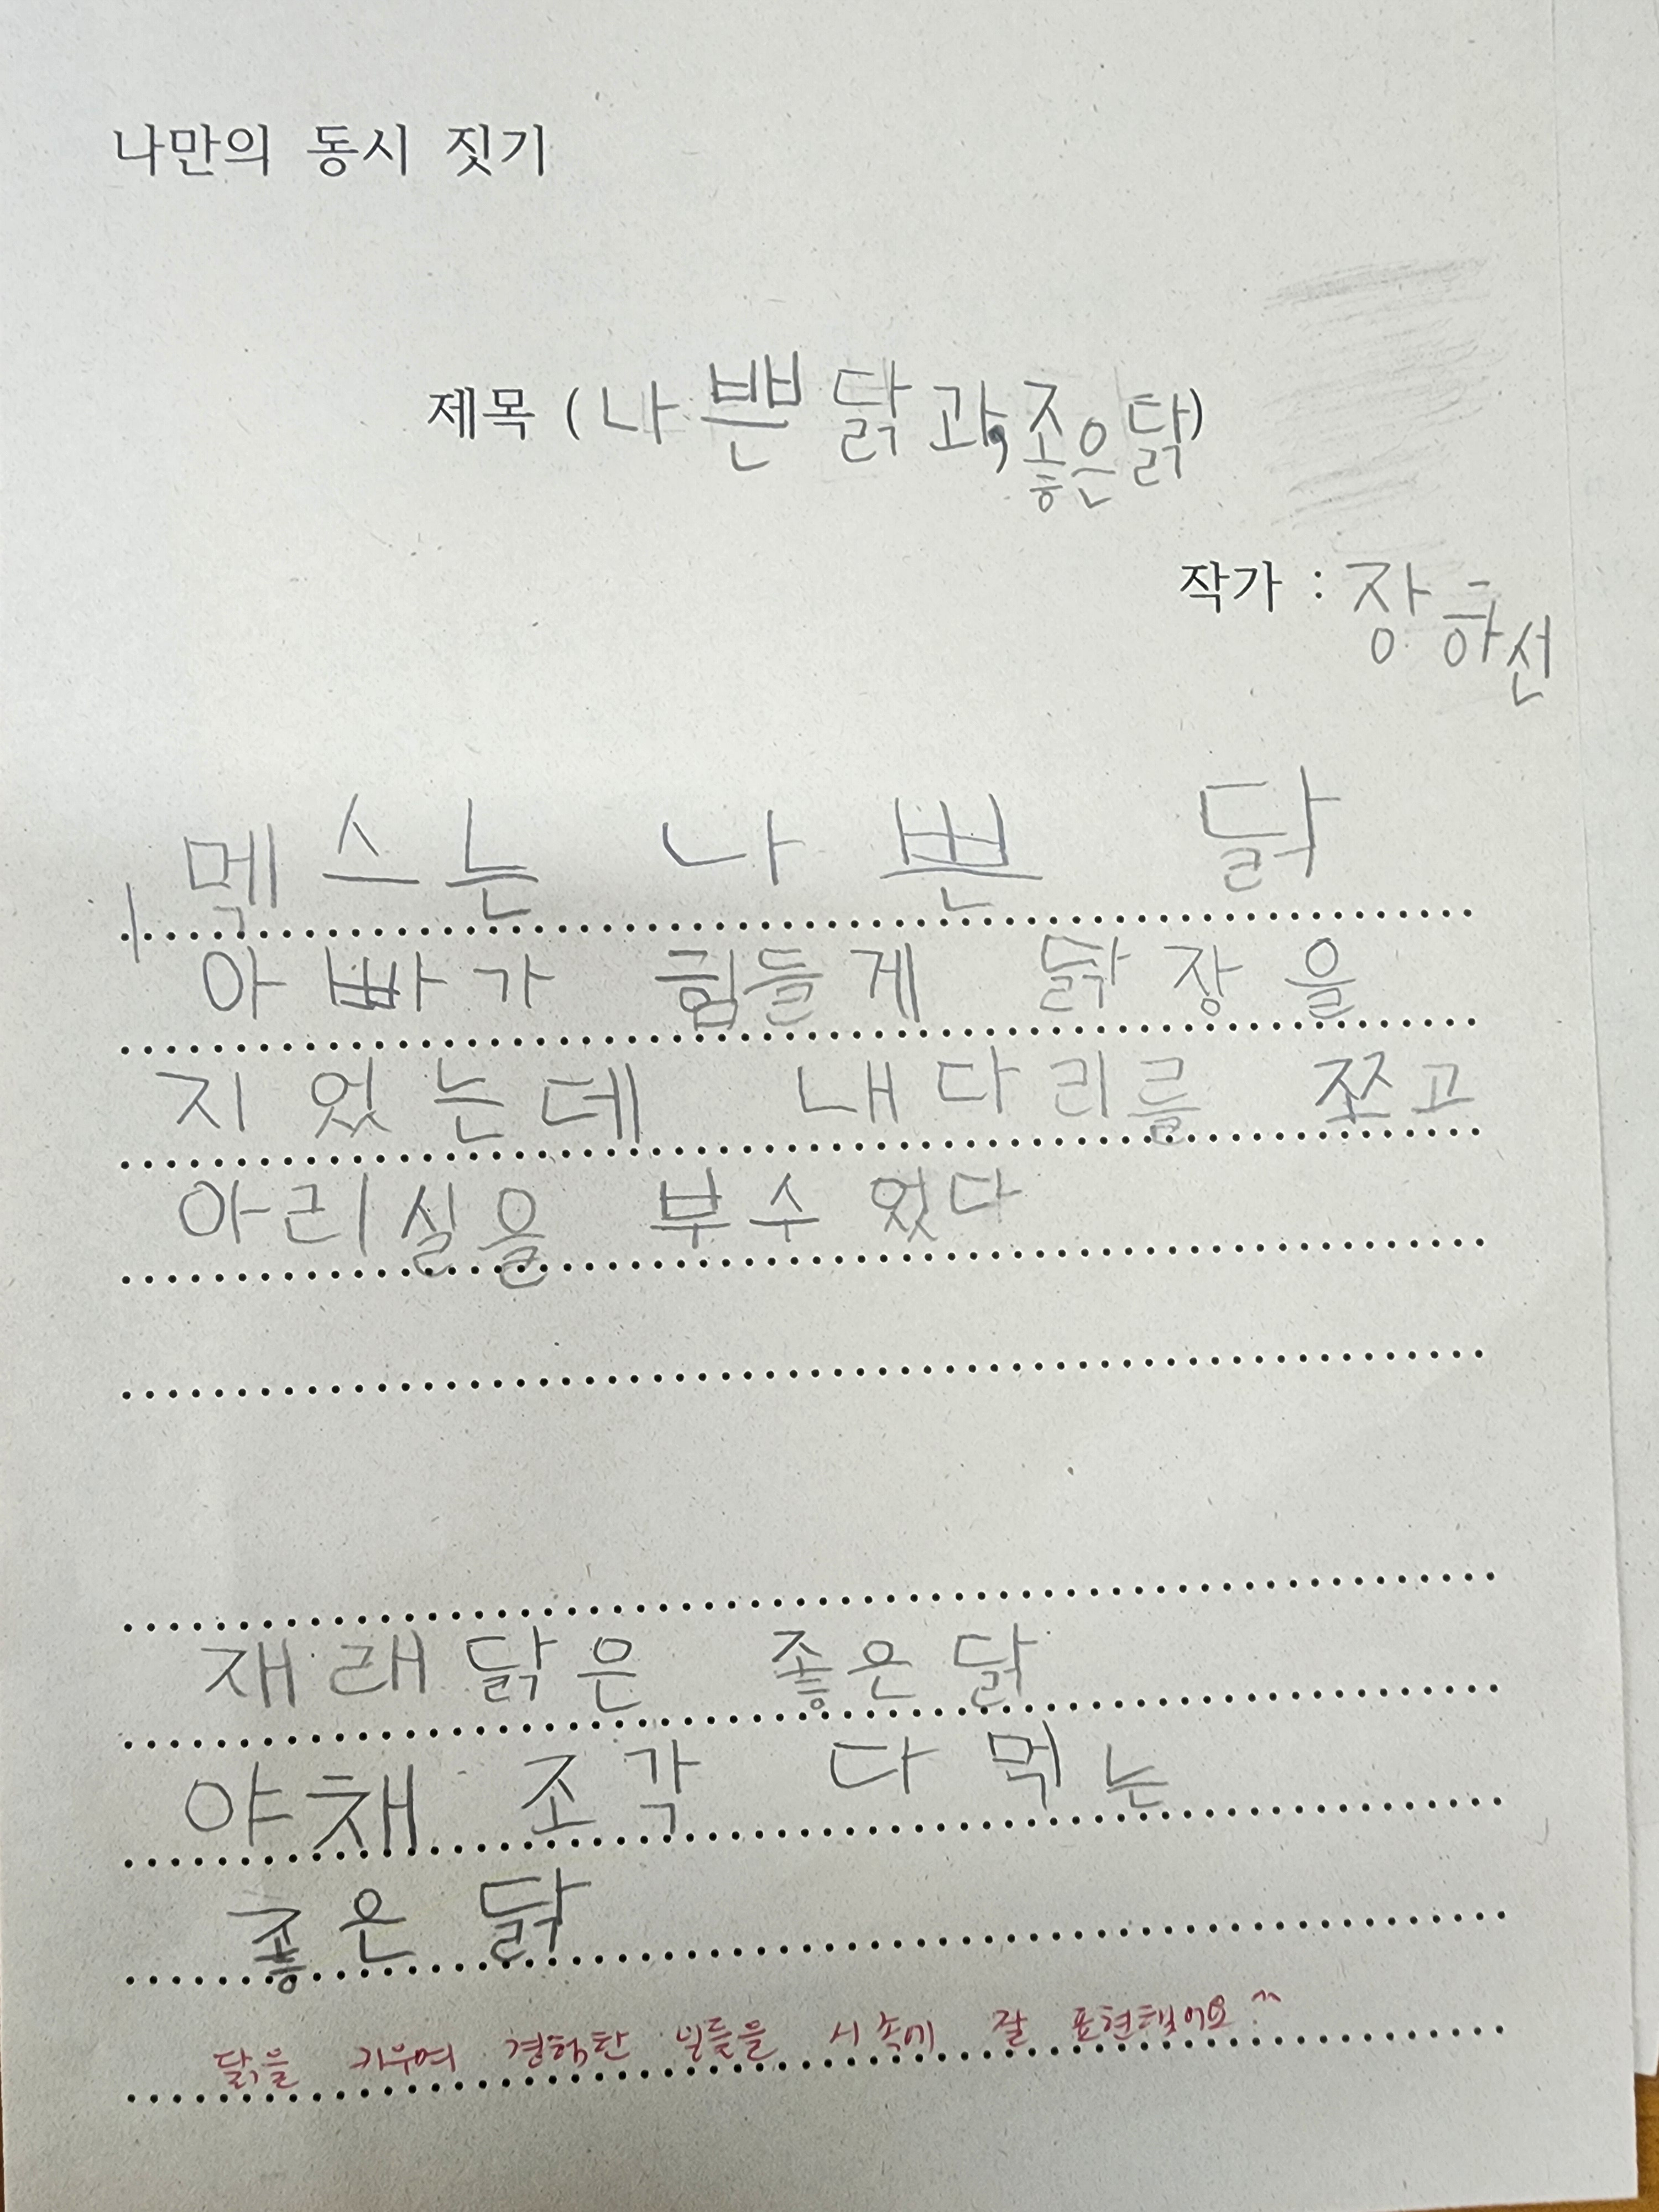 나만의 동시 짓기
제목 (나쁜닭과,좋은닭)
작가 : 장하선
멕스는 나쁜 닭
아빠가 힘들게 닭장을
지었는데 내다리를 쪼고
아리실을 부수었다
재래닭은 좋은닭
야채 조각 다먹는
좋은 닭
닭을 키우며 경험한 일들을 시 속에 잘 표현했어요^^